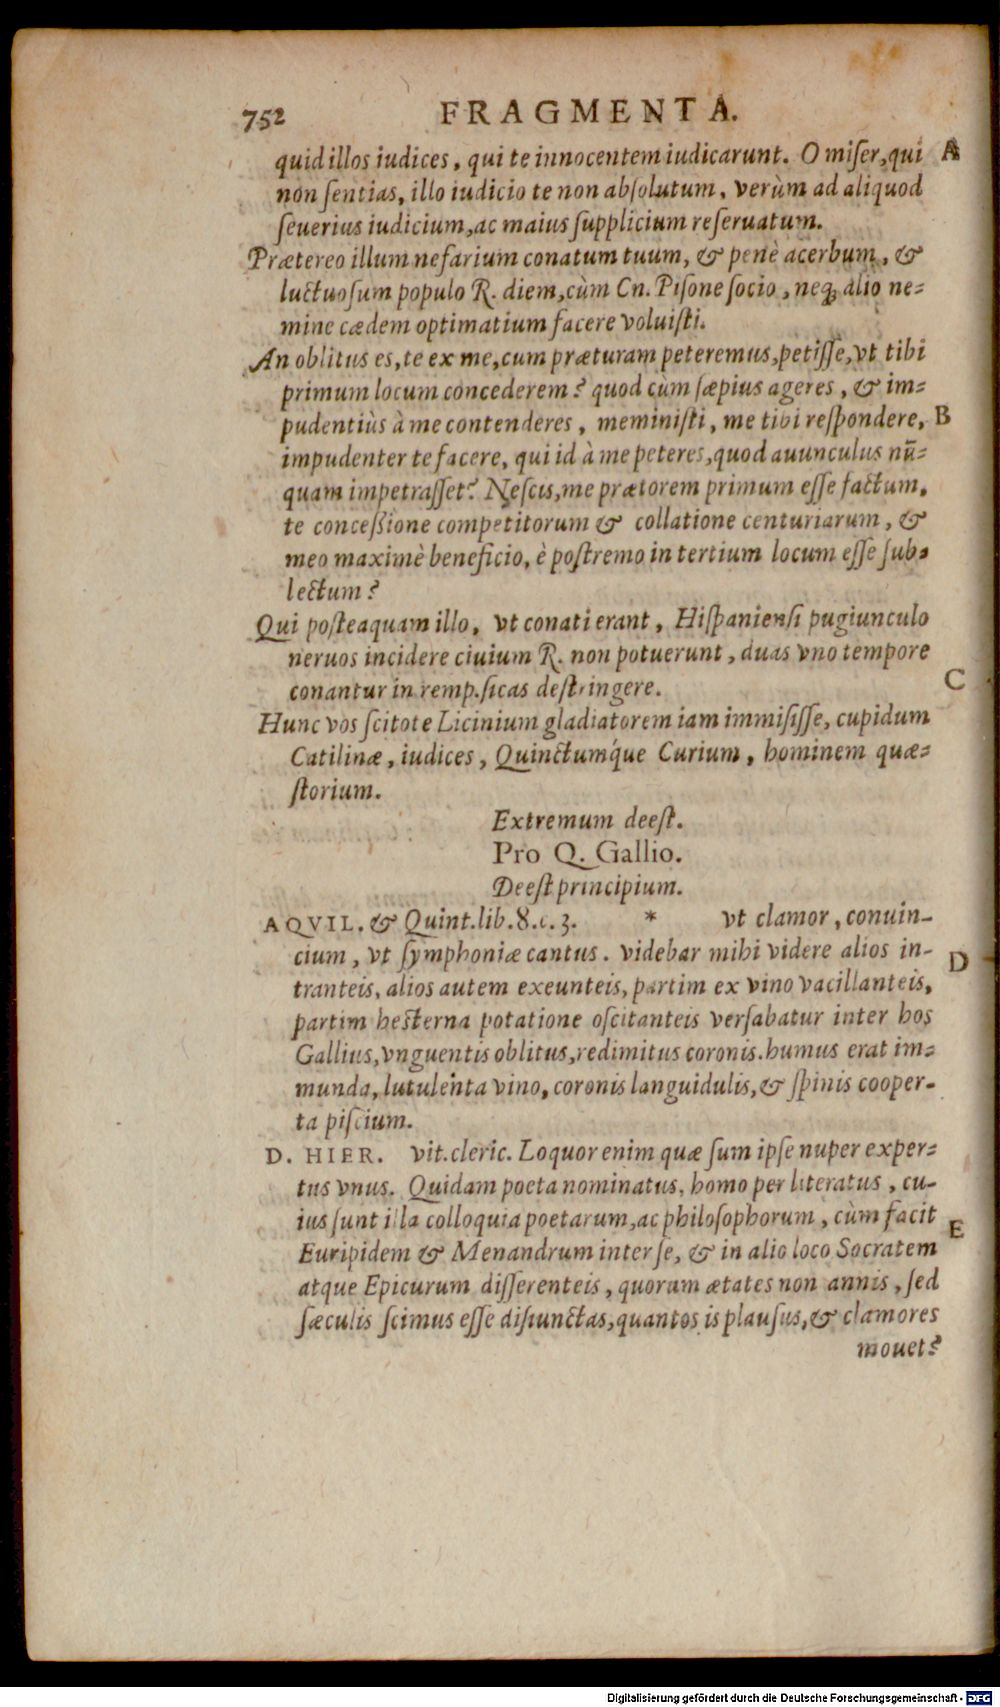 752 FRAGMENTA.
quid illos iudices, qui te innocentem iudicarunt. O miser, qui A
non sentias, illo iudicio te non absolutum, verùm ad aliquod
seuerius iudicium, ac maius supplicium reseruatum.
Prætereo illum nefarium conatum tuum, & penè acerbum, &
luctuosum populo R. diem, cùm Cn. Pisone socio, neq; alio ne=
mine cædem optimatium facere voluisti.
An oblitus es, te ex me, cum præturam peteremus, petisse, vt tibi
primum locum concederem? quod cùm sæpius ageres, & im=
pudentiùs à me contenderes, meministi, me tibi respondere, B
impudenter te facere, qui id à me peteres, quod auunculus nū=
quam impetrasset? Nescis, me prætorem primum esse factum,
te conceßione competitorum & collatione centuriarum, &
meo maximè beneficio, è postremo in tertium locum esse sub=
lectum?
Qui posteaquam illo, vt conati erant, Hispaniensi pugiunculo
neruos incidere ciuium R. non potuerunt, duas vno tempore
conantur in remp. sicas destringere. C
Hunc vos scitote Licinium gladiatorem iam immisisse, cupidum
Catilinæ, iudices, Quinctumq́ue Curium, hominem quæ=
storium.
Extremum deest.
Pro Q. Gallio.
Deest principium.
AQVIL. & Quint. lib. 8. c. 3. * vt clamor, conuin-
cium, vt symphoniæ cantus. videbar mihi videre alios in- D
tranteis, alios autem exeunteis, partim ex vino vacillanteis,
partim hesterna potatione oscitanteis versabatur inter hos
Gallius, vnguentis oblitus, redimitus coronis. humus erat im=
munda, lutulenta vino, coronis languidulis, & spinis cooper-
ta piscium.
D. HIER. vit. cleric. Loquor enim quæ sum ipse nuper exper=
tus vnus. Quidam poeta nominatus, homo per literatus, cu-
ius sunt illa colloquia poetarum, ac philosophorum, cùm facit E
Euripidem & Menandrum inter se, & in alio loco Socratem
atque Epicurum disserenteis, quorum ætates non annis, sed
sæculis scimus esse disiunctas, quantos is plausus, & clamores
mouet?
Digitalisierung gefördert durch die Deutsche Forschungsgemeinschaft - DFG